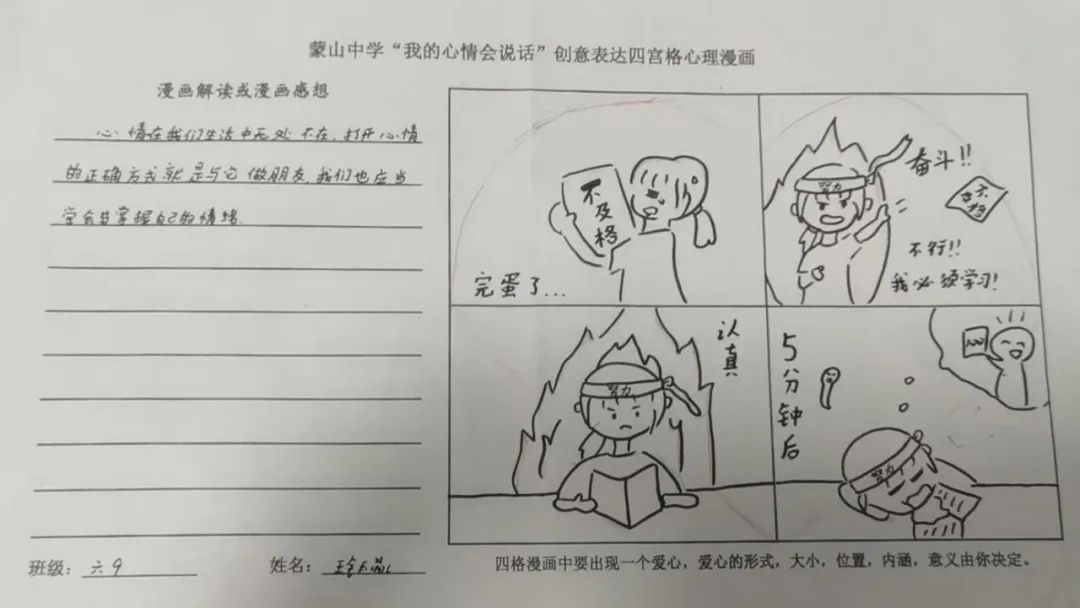 蒙山中学“我的心情会说话”创意表达四宫格心理漫画
漫画解读或漫画感想
心情在我们生活中无处不在,打开心情
的正确方式就是与它做朋友,我们也应当
学会去掌握自己的情绪.
班级:六9
姓名:
不及格
完蛋了...
努力
奋斗!!
不及格
不行!!
我必须学习!
认真
努力
5分钟后
100
努力
四格漫画中要出现一个爱心,爱心的形式,大小,位置,内涵,意义由你决定。